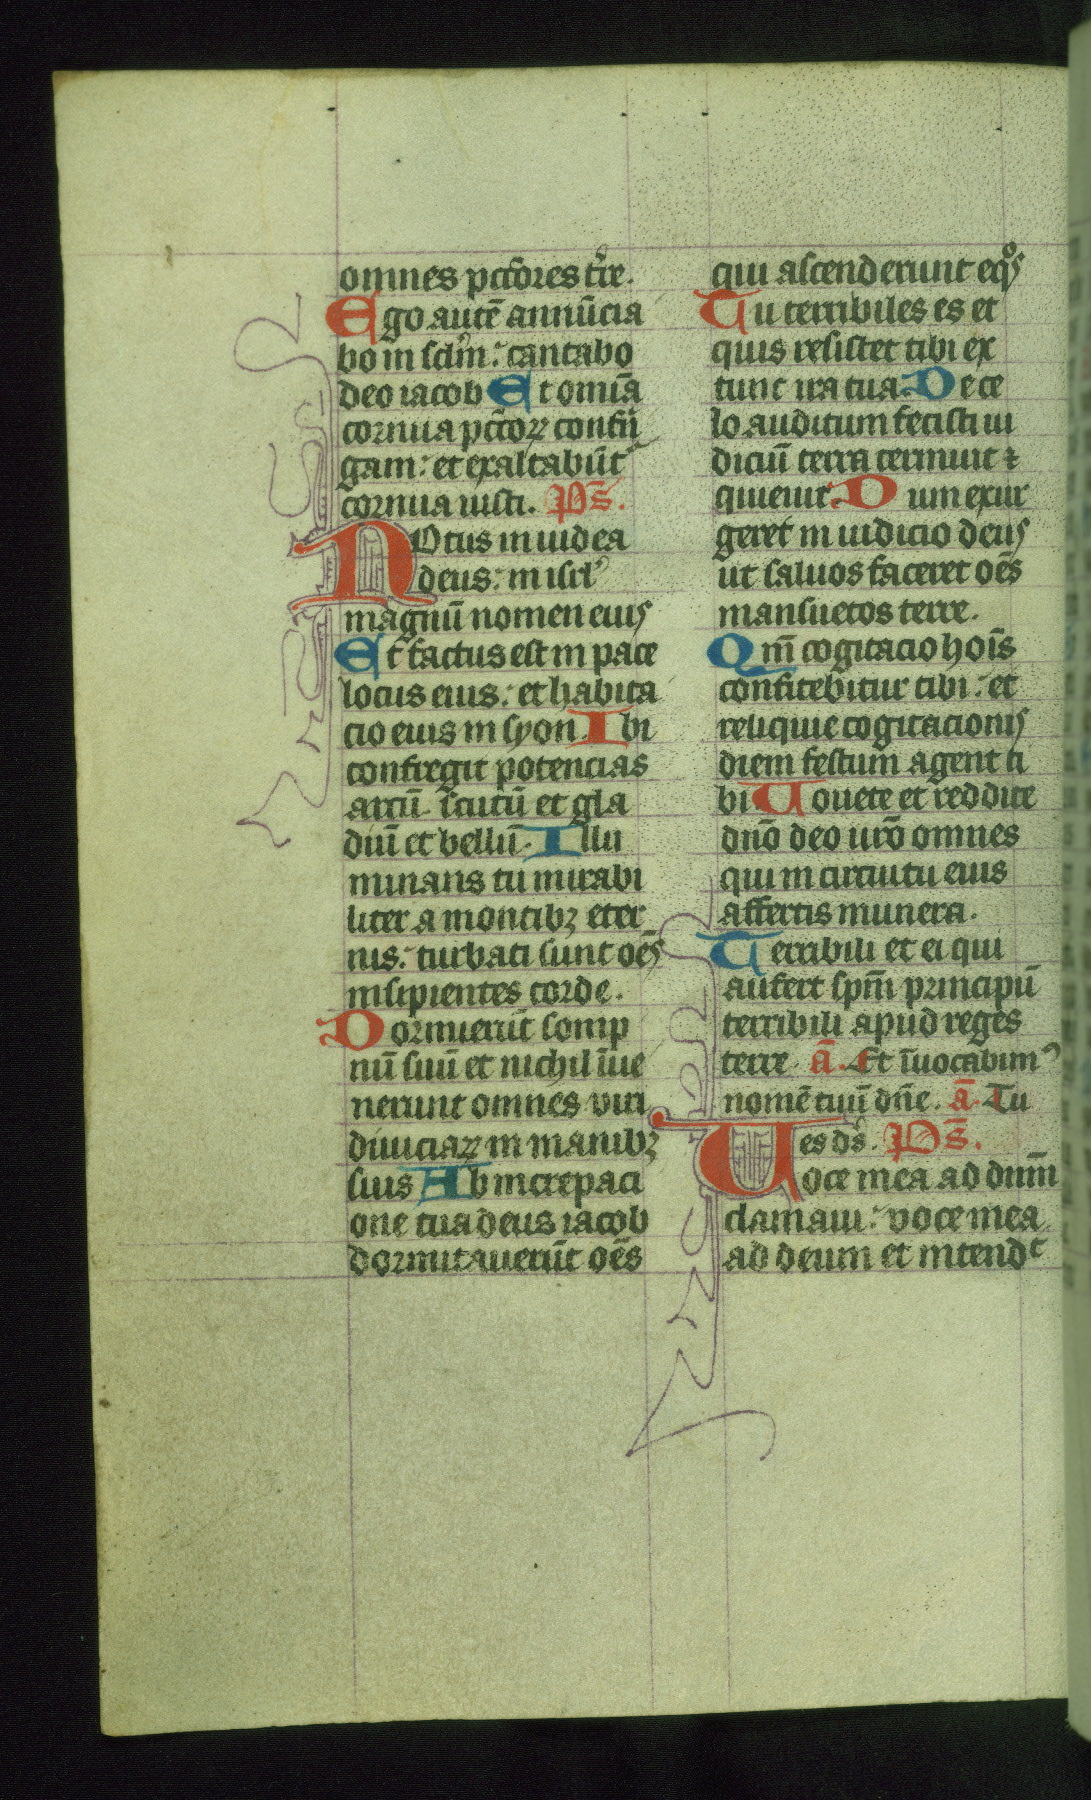 omnes pctōres tr̄e.
Ego autē annūcia
bo in sclm̄: cantabo
deo iacob Et omīa
cornua pctōꝝ confrī
gam: et exaltabūt
cornua iusti. Ps̄.
NOtus in iudea
deus: in isrl'
magnū nomen eius
Et factus est in pace
locus eius: et habita
cio eius in syon. Ibi
confregit potencias
arcū. scutū et gla
diū et bellū. Illu
minans tu mirabi
liter a montibꝫ eter
nis: turbati sunt oēs
insipientes corde.
Dormierūt somp
nū suū et nichil īue
nerunt omnes viri
diuiciaꝝ in manibꝫ
suis Ab increpaci
one tua deus iacob
dormitauerūt oēs
qui ascenderunt eqͦs
Tu terribiles es et
quis resistet tibi ex
tunc ira tua. De ce
lo auditum fecisti iu
diciū terra termuit ⁊
quieuit. Dum exur
geret in iudicio deus
ut saluos faceret oēs
mansuetos terre.
Qm̄ cogitacio hoīs
confitebitur tibi: et
reliquie cogitacionis
diem festum agent ti
bi Uouete et reddite
dnō deo urō omnes
qui in circuitu eius
affertis munera.
Terribili et ei qui
aufert spm̄ principū
terribili apud reges
terre. ā. Et īuocabimꝰ
nomē tuū dn̄e. ā. Tu
es ds̄. Ps̄.
Uoce mea ad dnm̄
clamaui: voce mea
ad deum et intendͭ